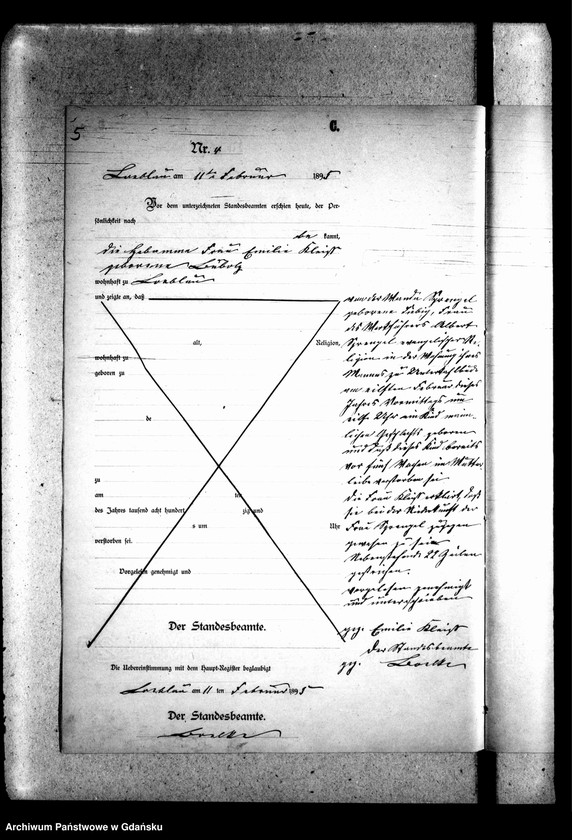 5
C.
Nr. 4
Loeblau am 11ten Februar 1895
Vor dem unterzeichneten Standesbeamten erschien heute, der Per-
sönlichkeit nach
be kannt,
die Hebamme Frau Emilie Kleist
geborene
wohnhaft zu Loeblau
und zeigte an, daß
alt, Religion,
wohnhaft zu
geboren zu
de
zu
am ten
des Jahres tausend acht hundert zig und
s um Uhr
verstorben sei.
Vorgelesen genehmigt und
Der Standesbeamte.
von der Wanda Sprengel
geborene Frau
des Werkführers Albert
Sprengel evangelischer Re-
ligion in der Wohnung ihres
Mannes zu
am elften Februar dieses
Jahres Vormittags um
elf Uhr ein Kind männ-
lichen Geschlechts geboren
und daß dieses Kind bereits
vor fünf Wochen im Mutter
leibe verstorben sei
Die Frau Kleist erklärt, daß
sie bei der Niederkunft der
Frau Sprengel zugegen
gewesen zu sein
Nebenstehende 22 Zeilen
gestrichen.
vorgelesen genehmigt
und unterschrieben
gez. Emilie Kleist
Der Standesbeamte
gez. Boelke
Die Uebereinstimmung mit dem Haupt-Register beglaubigt
Loeblau am 11 ten Februar 1895
Der Standesbeamte.
Boelke
Archiwum Państwowe w Gdańsku